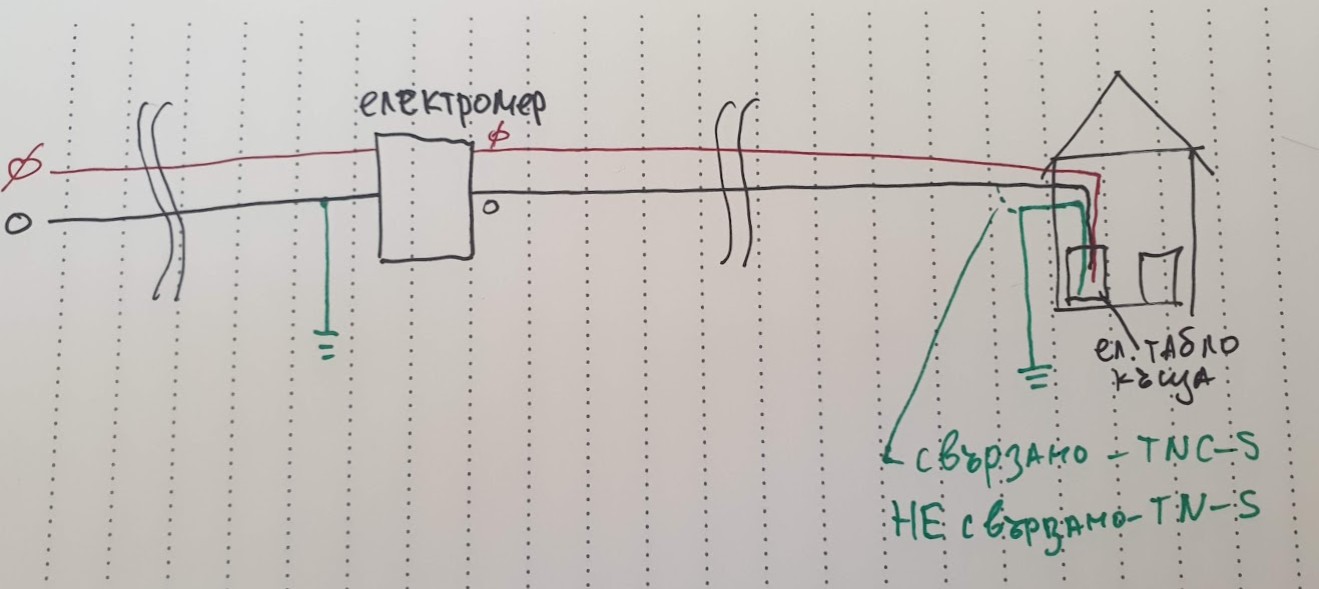 електромер
ф
ф
о
о
ел. табло
къща
свързано - TNC-S
НЕ свързано - TN-S